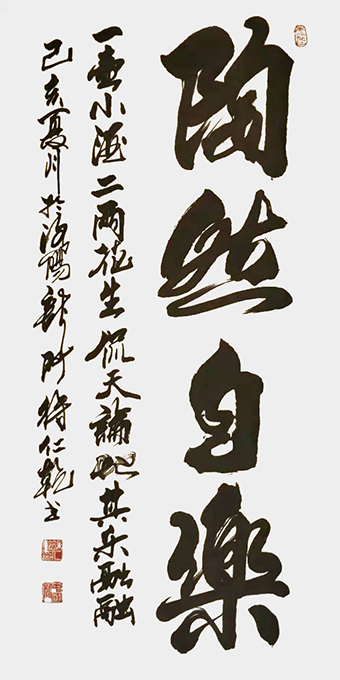 陶然自樂
一壺小酒二两花生侃天論地其乐融融
己亥夏月於洛陽仁乾书